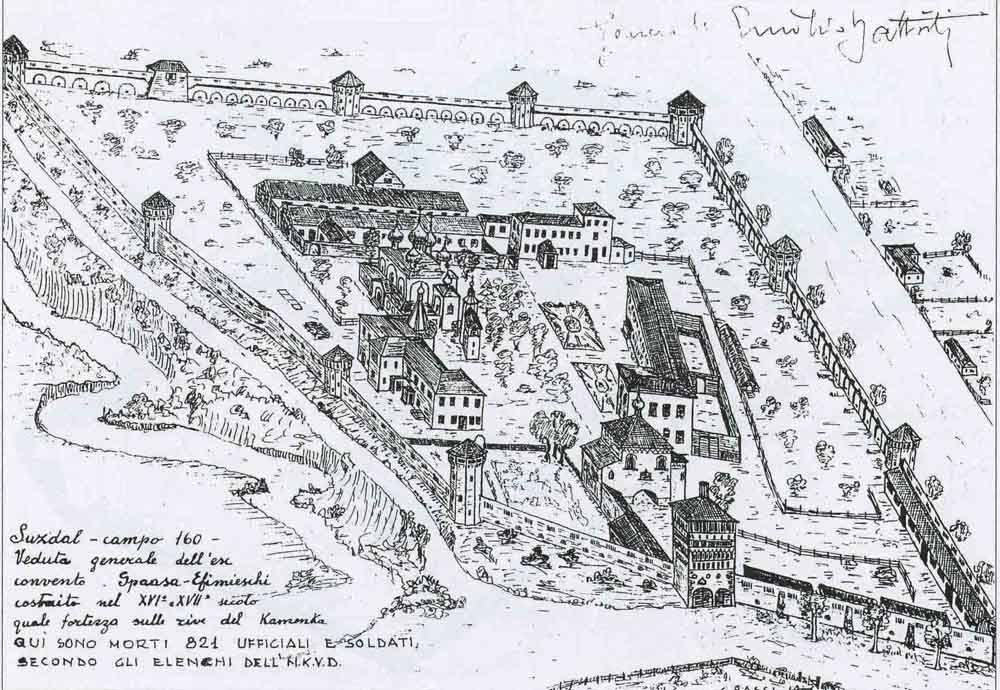 Emilio Battisti
Suzdal - campo 160 -
Veduta generale dell'ex
convento . Spaasa-Efimieschi
costruito nel XVI° e XVII° secolo
quale fortezza sulle rive del Kamenka
QUI SONO MORTI 821 UFFICIALI E SOLDATI,
SECONDO GLI ELENCHI DELL'N.K.V.D.